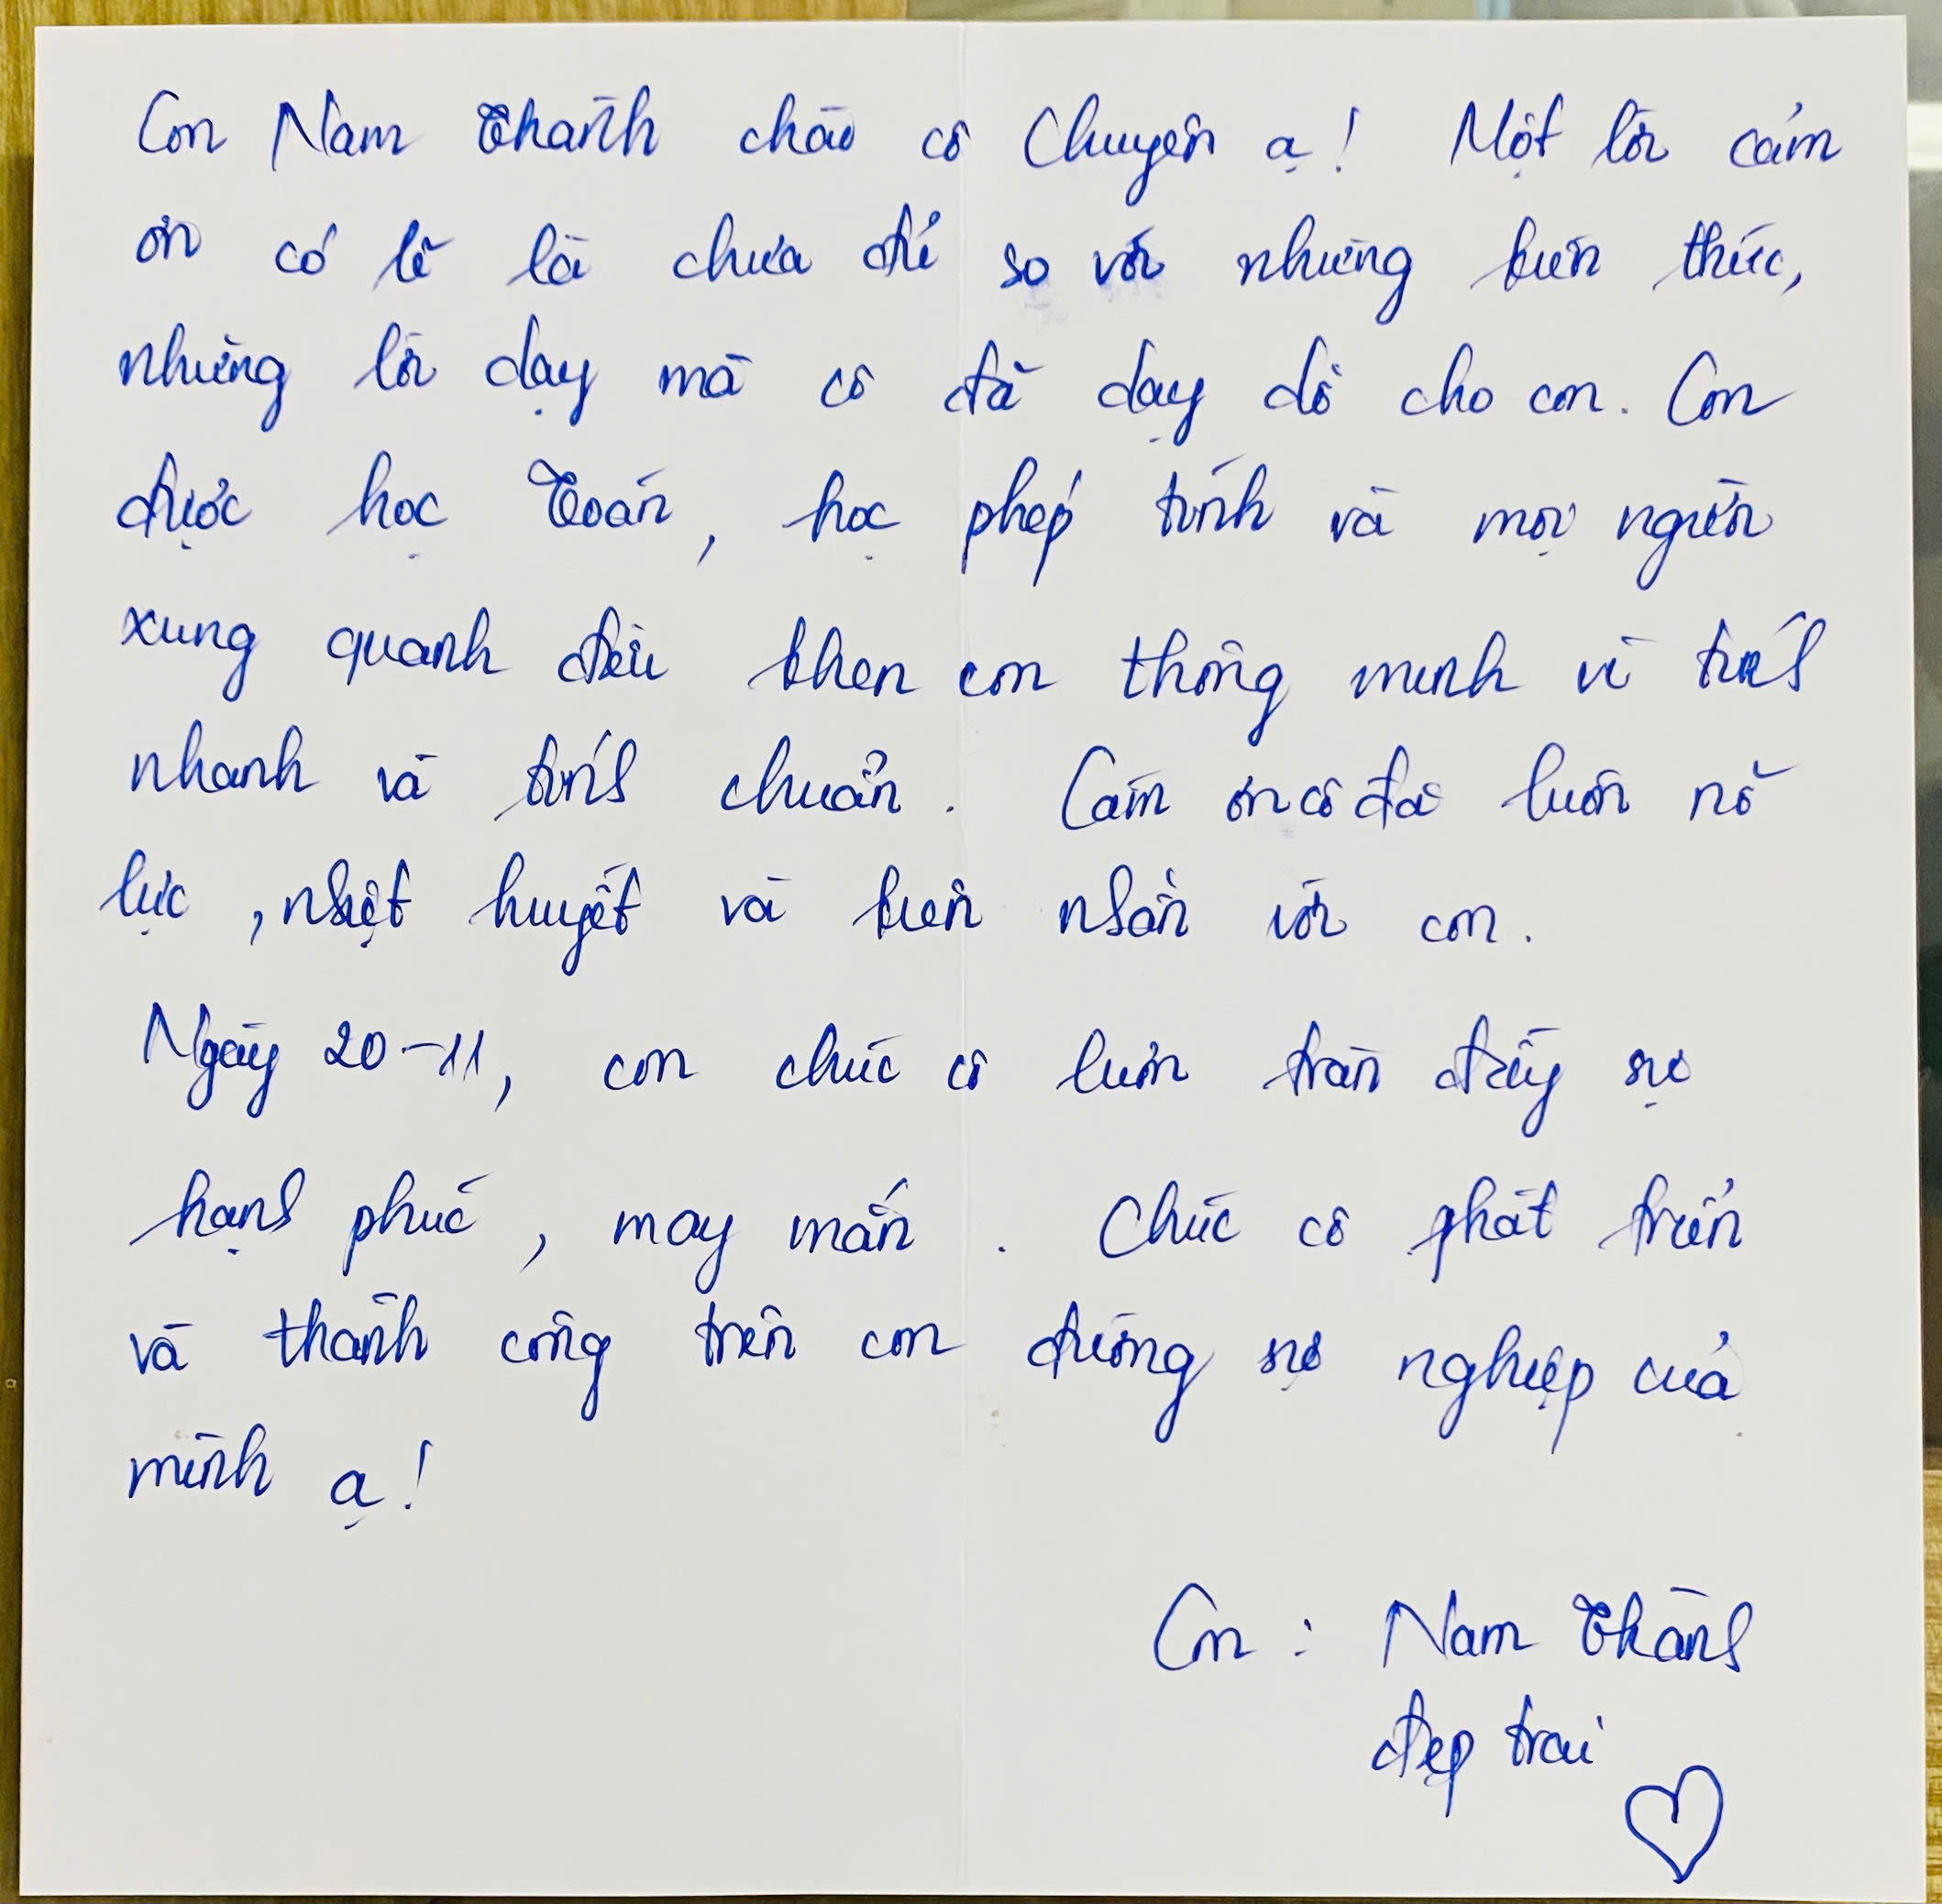 Con Nam Thành chào cô Chuyên ạ! Một lời cảm
ơn có lẽ là chưa đủ so với những kiến thức,
những lời dạy mà cô đã dạy dỗ cho con. Con
được học Toán, học phép tính và mọi người
xung quanh đều khen con thông minh vì tính
nhanh và tính chuẩn. Cảm ơn cô đã luôn nỗ
lực, nhiệt huyết và kiên nhẫn với con.
Ngày 20-11, con chúc cô luôn tràn đầy sự
hạnh phúc, may mắn. Chúc cô phát triển
và thành công trên con đường sự nghiệp của
mình ạ!
Con: Nam Thành
đẹp trai